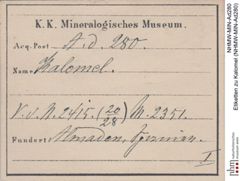 K. K. Mineralogisches Museum.
Acq. Post A. d. 280.
Name Kalomel.
V. d. N. 2415. (20/28) M. 2351.
Fundort: Almaden, Spanien.
I
NHMW-MIN-Ad280
Etiketten zu Kalomel (NHMW-MIN-Ad280)
nhm